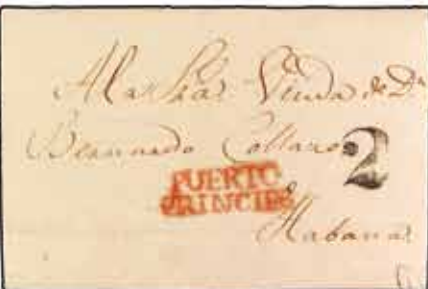 A la Sra. Viuda de Dn.
Bernardo Collazo
2
PUERTO
PRINCIPE
Habana